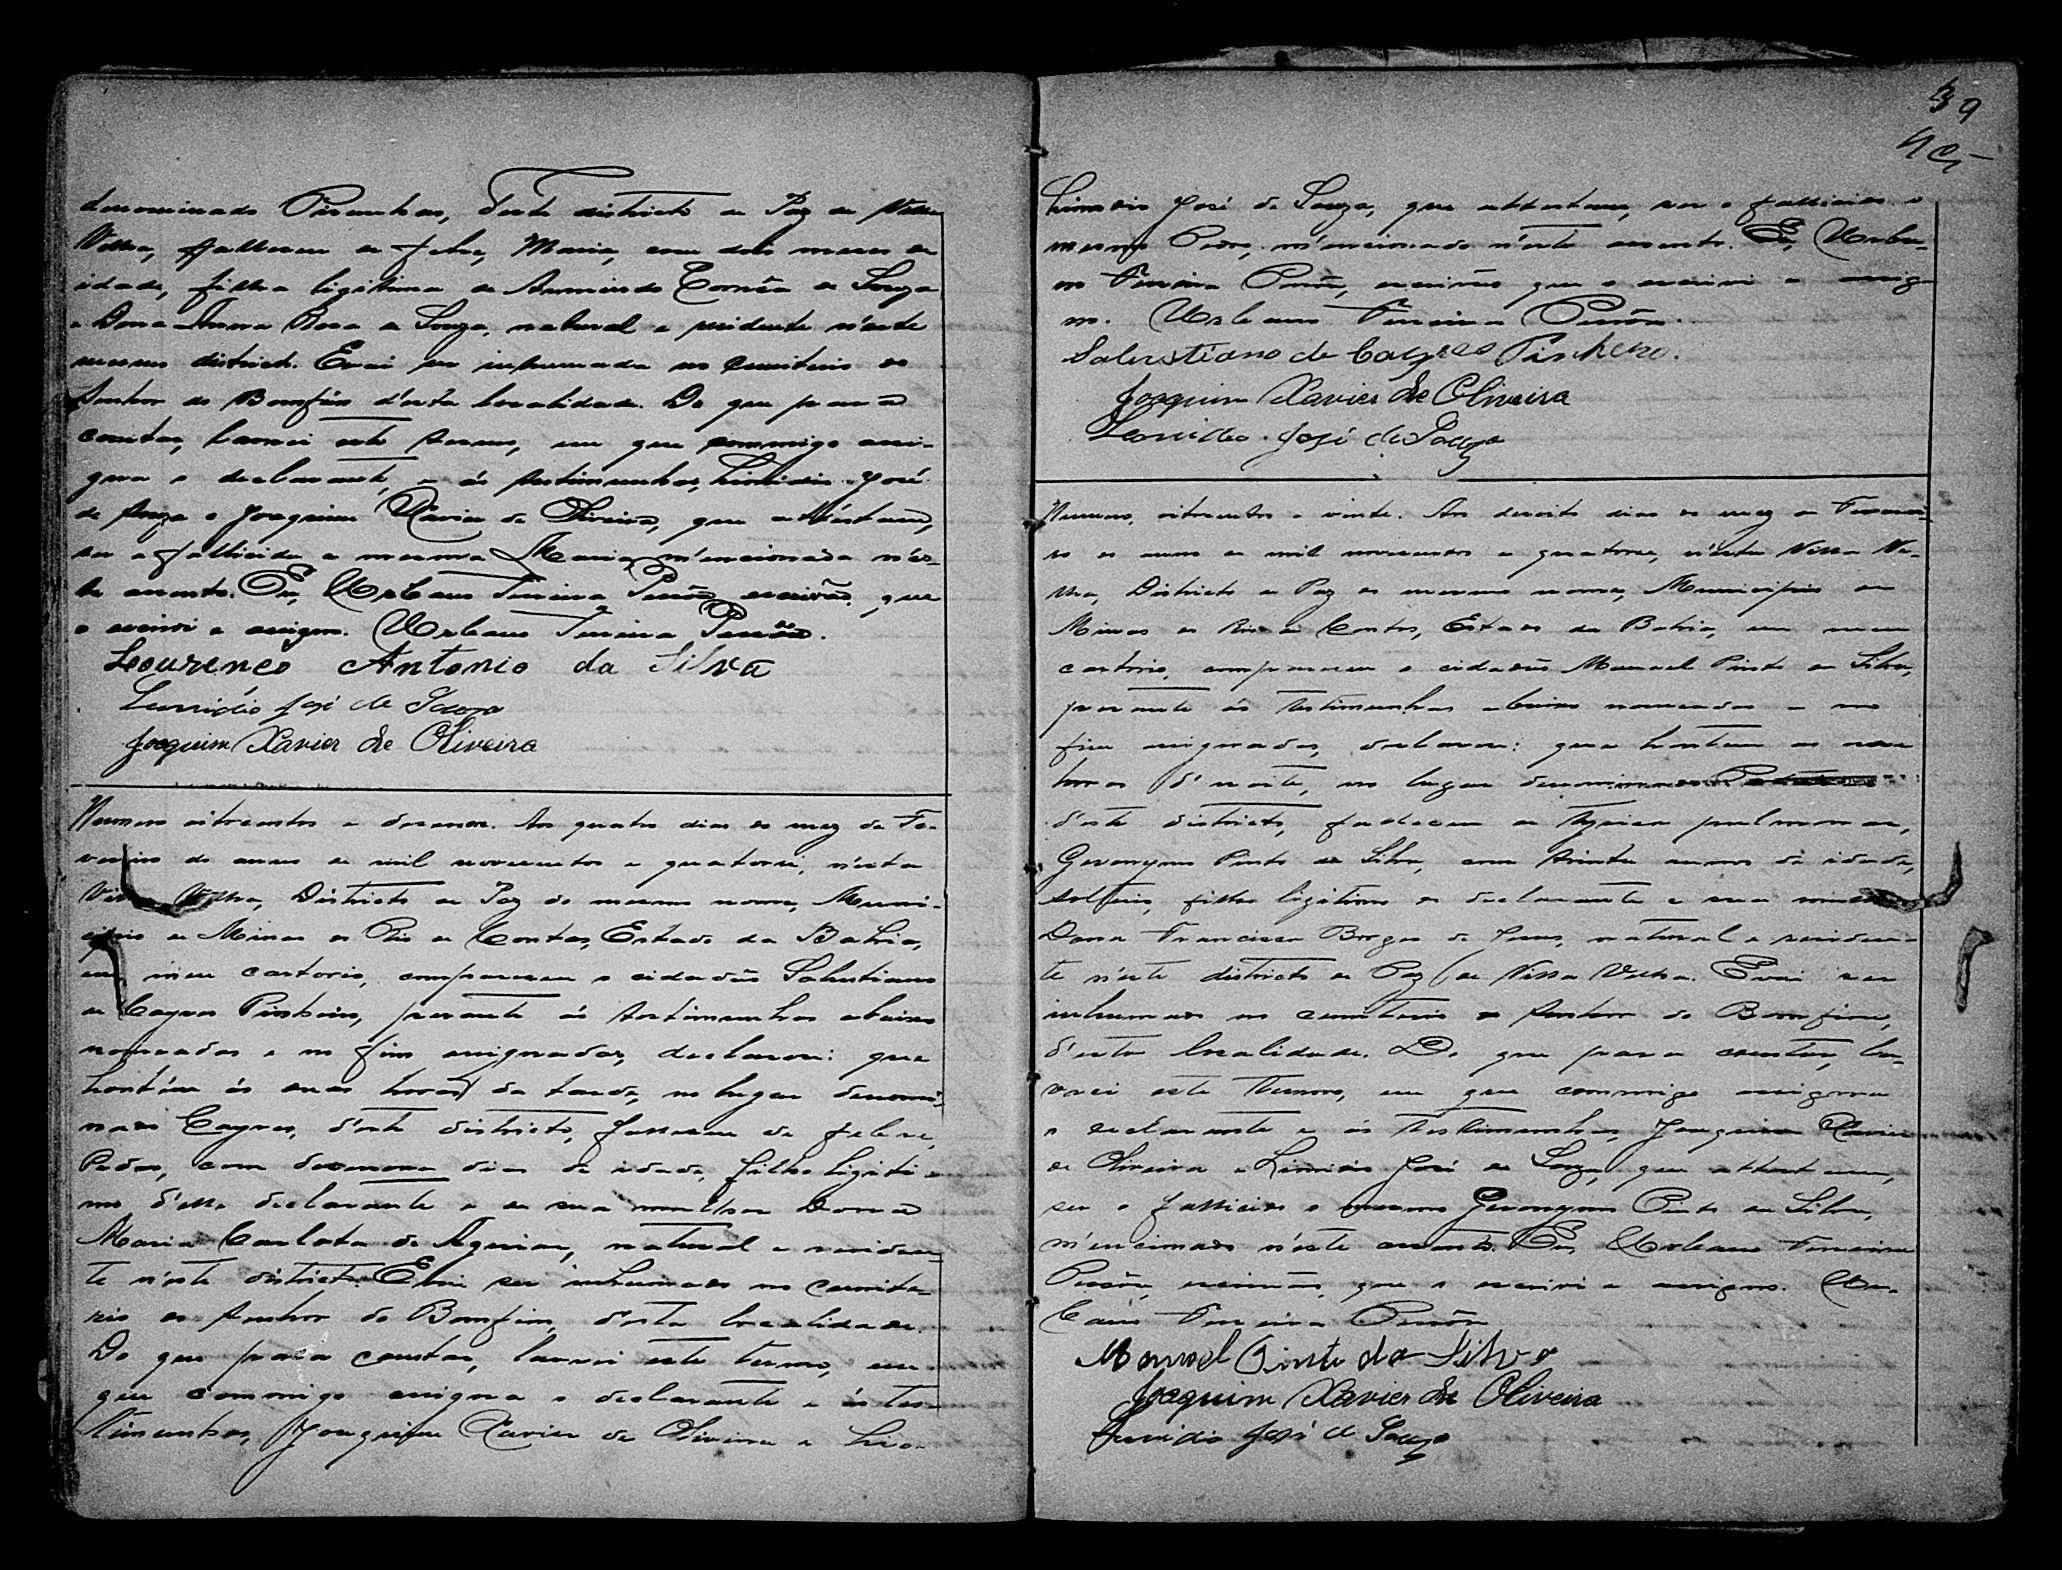 denominado Piranhas, d'este districto de Paz de Villa
Velha, falleceu de febre, Maria, com dois mezes de
idade, filha legitima de Armindo Corrêa de Souza
e Dona Anna Rosa de Souza, natural e residente n'este
mesmo districto. E vai ser inhumada no cemiterio do
Senhor do Bomfim d'esta localidade. Do que para
constar, lavrei este termo, em que commigo assi-
gna o declarante, e ás testimunhas, Leonidio José
de Souza e Joaquim Xavier de Oliveira, que attestam,
ser a fallecida a mesma Maria, m'encionada n'es-
te assento. Eu, Urbano Ferreira Pessôa, escrivão, que
o escrevi e assigno. Urbano Ferreira Pessôa.
Lourenco Antonio da Silva
Leonidio José de Souza
Joaquim Xavier de Oliveira
Numero oitocentos e dezenove. Aos quatro dias do mez de Fe-
vereiro do anno de mil novecentos e quatorze, n'esta
Villa Velha, Districto de Paz do mesmo nome, Muni-
cipio de Minas do Rio de Contas, Estado da Bahia,
em meu cartorio, compareceu o cidadão Salustiano
de Cayres Pinheiro, perante ás testimunhas abaixo
nomeadas e no fim assignadas, declarou: que
hontém ás duas horas da tarde, no lugar denomi-
nado Cayres, d'este districto, falleceu de febre,
Pedro, com dezenove dias de idade, filho legiti-
mo d'elle declarante e de sua mulher Dona
Maria Carlota de Aguiar, natural e residen-
te n'este districto. E vai ser inhumado no cemite-
rio do Senhor do Bomfim, d'esta localidade.
Do que para constar, lavrei este termo, em
que commigo assigna o declarante e ás tes-
timunhas, Joaquim Xavier de Oliveira e Leo-
39
nidio José de Souza, que attestam, ser o fallecido o
mesmo Pedro, m'encionado n'este assento. Eu, Urba-
no Ferreira Pessôa, escrivão que o escrevi e assig-
no. Urbano Ferreira Pessôa.
Salustiano de Cayres Pinheiro.
Joaquim Xavier de Oliveira
Leonidio José de Souza
Numero, oitocentos e vinte. Aos dezoito dias do mez de Feverei-
ro do anno de mil novecentos e quatorze, n'esta Villa Ve-
lha, Districto de Paz do mesmo nome, Municipio de
Minas do Rio de Contas, Estado da Bahia, em meu
cartorio, compareceu o cidadão Manoel Pinto da Silva,
perante ás testimunhas abaixo nomeadas e no
fim assignadas, declarou: que hontem as
horas d'noite, no lugar denominado
d'este districto, falleceu de tysica pulmonar,
Geronymo Pinto da Silva, com trinta annos de idade,
solteiro, filho legitimo do declarante e sua mulher
Dona Francisca Borges de Jesus, natural e residen-
te n'este districto de Paz de Villa Velha. E vai ser
inhumado no cemiterio do Senhor do Bomfim,
d'esta localidade. Do que para constar, la-
vrei este termo, em que commigo assigna
o declarante e ás testimunhas, Joaquim Xavier
de Oliveira e Leonidio José de Souza, que attestam,
ser o fallecido o mesmo Geronymo Pinto da Silva,
m'encionado n'este assento. Eu, Urbano Ferreira
Pessôa, escrivão, que o escrevi e assigno. Ur-
bano Ferreira Pessôa
Manoel Pinto da Silva
Joaquim Xavier de Oliveira
Leonidio José de Souza